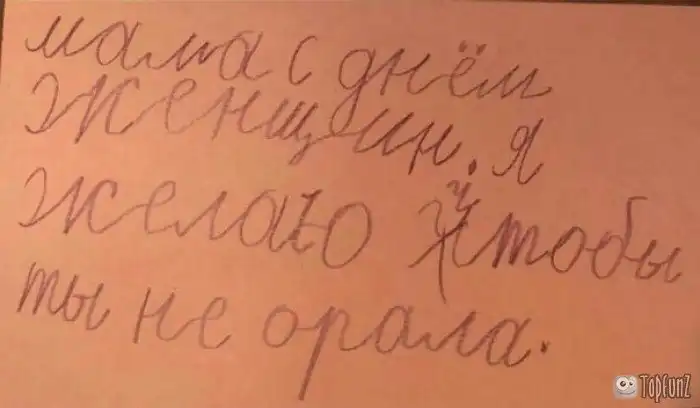 мама с днём
женщин. я
желаю чтобы
ты не орала.
TopFunZ